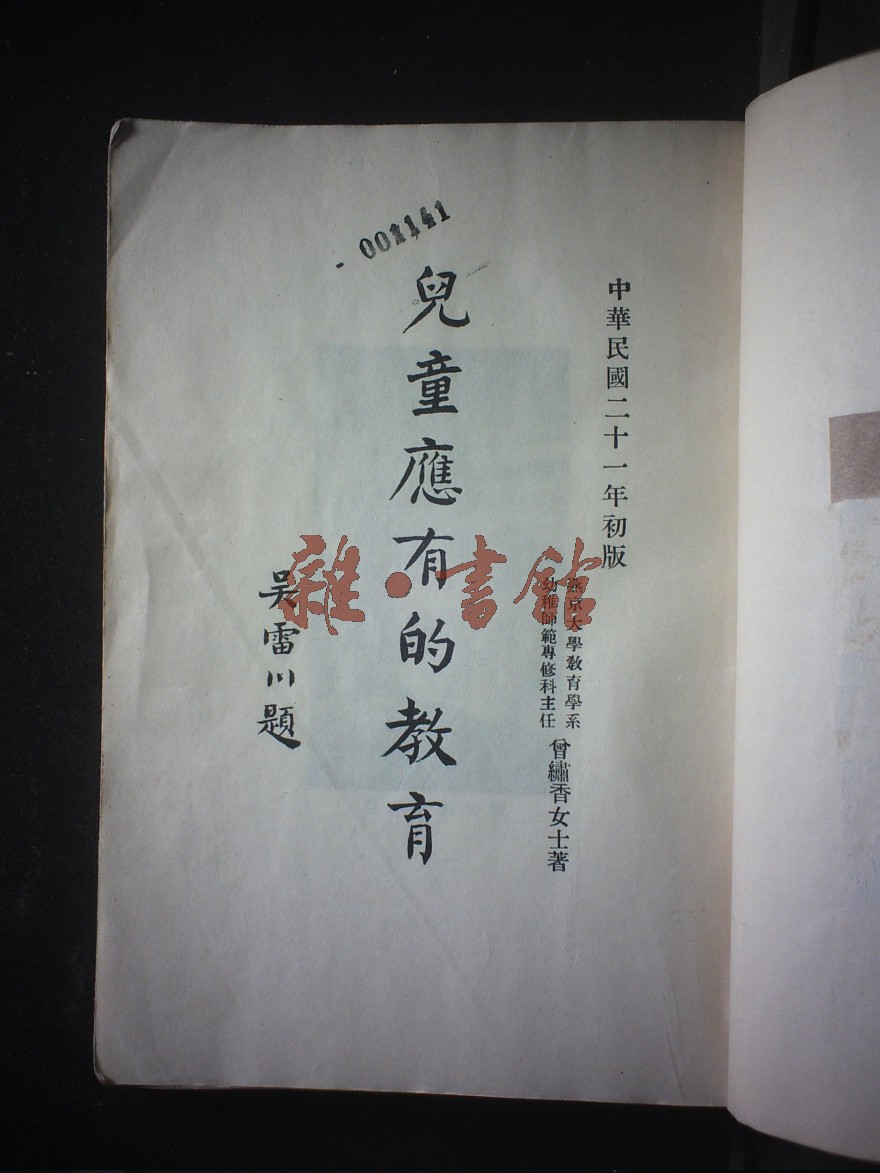 001141
中華民國二十一年初版
燕京大學教育學系
幼稚師範專修科主任
曾繡香女士著
兒童應有的教育
吴雷川題
雜·書館